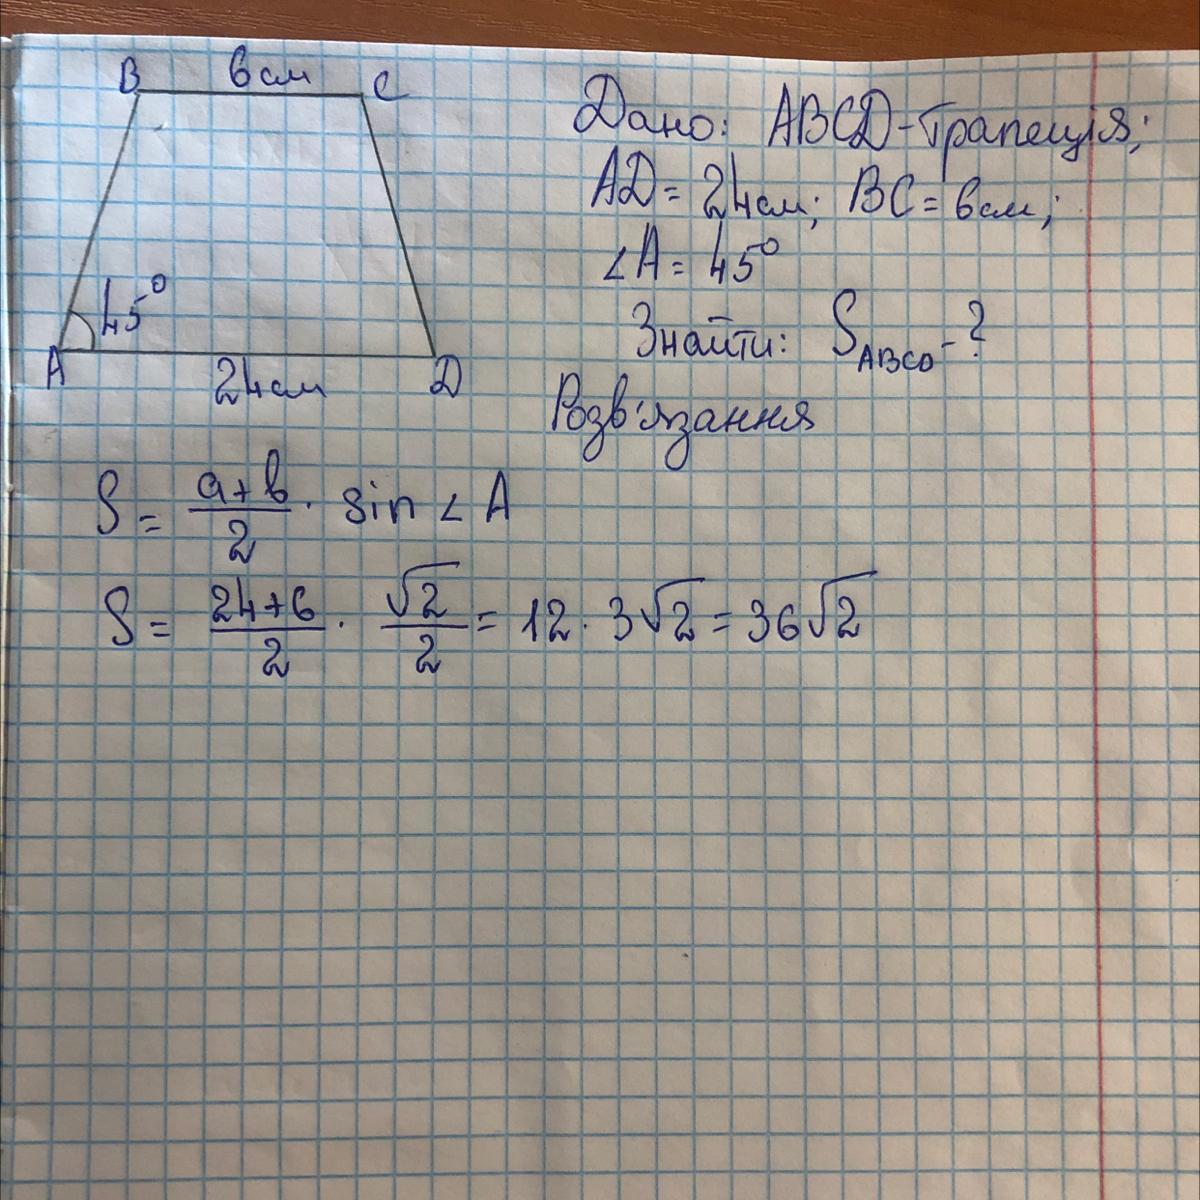 B 6см C
Дано: ABCD-трапеція;
AD = 24см; BC = 6см;
∠A = 45°
45°
Знайти: S ABCD - ?
A 24см D
Розв'язання
S = a+b/2 · sin ∠ A
S = 24+6/2 · √2/2 = 12 · 3√2 = 36√2